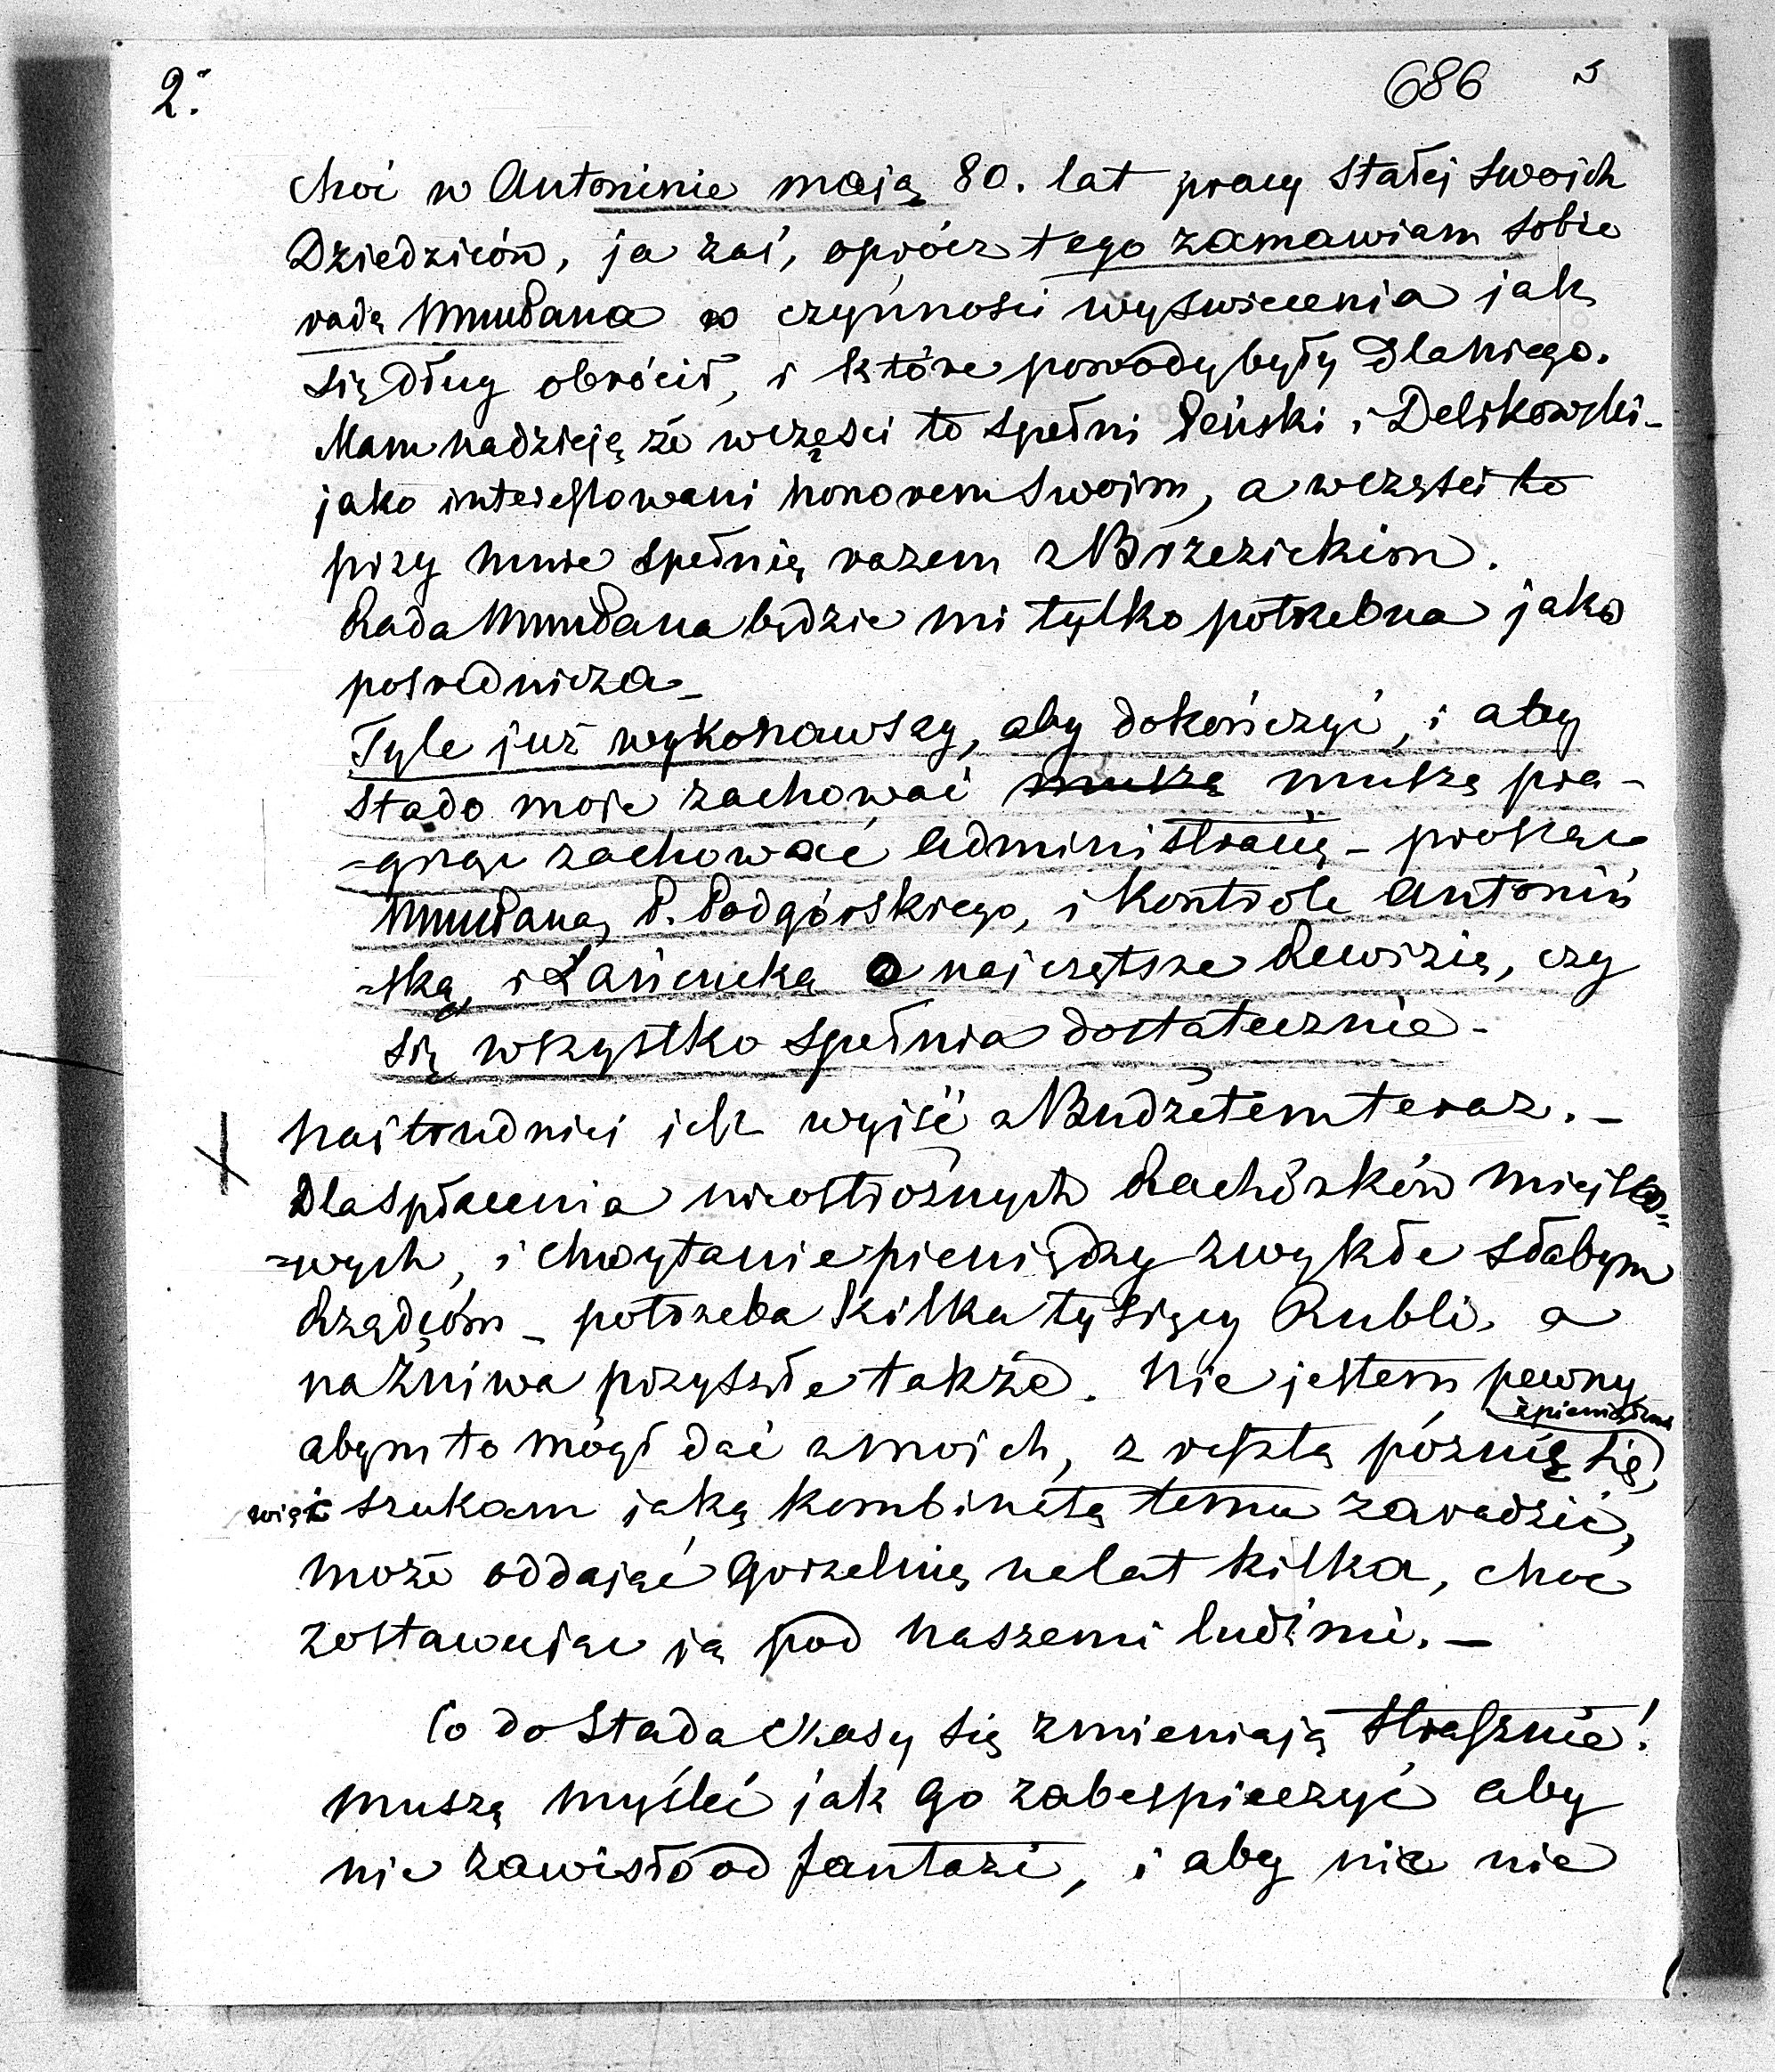 2.
686 5
choć w Antoninie mają 80. lat pracy stałej swoich
Dziedziców, ja zaś, oprócz tego zamawiam sobie
radę WmuPana w czynności wyświecenia jak
się dług obrócił, i które powody były dla niego.
Mam nadzieję że wczęści to spełni Peński i Delikowski -
jako interessowani honorem swoim, a wczęści to
przy mnie spełnią razem z Brzezickim.
Rada WmuPana będzie mi tylko potrzebna jako
pośrednicza -
Tyle już wykonawszy, aby dokończyć, i aby
stado moje zachować muszę muszę pra-
=gnąc zachować administracją - proszę
WmuPana, P. Podgórskiego, i Kontrole Antoniń
=ską, i Łańcucką o najczętsze Rewizię, czy
się wszystko spełnia dostatecznie -
najtrudniej jest wyjść z Budżetem teraz. -
Dla spłacenia nieostrożnych Rachónków miejsco=
=wych, i chwytanie pieniędzy zwykłe słabym
Rządcóm - potrzeba kilka tysięcy Rubli, a
na żniwa przyszłe także. Nie jestem pewny
z pieniędzmi
abym to mógł dać z moich, z resztą póznię się,
więc szukam jaką kombinatą temu zaradzić,
może oddając gorzelnię na lat kilka, choć
zostawując ją pod naszemi ludźmi. -
Co do Stada czasy się zmieniają strasznie!
muszę myśleć jak go zabespieczyć aby
nie zawisło od fantazi, i aby nic nie